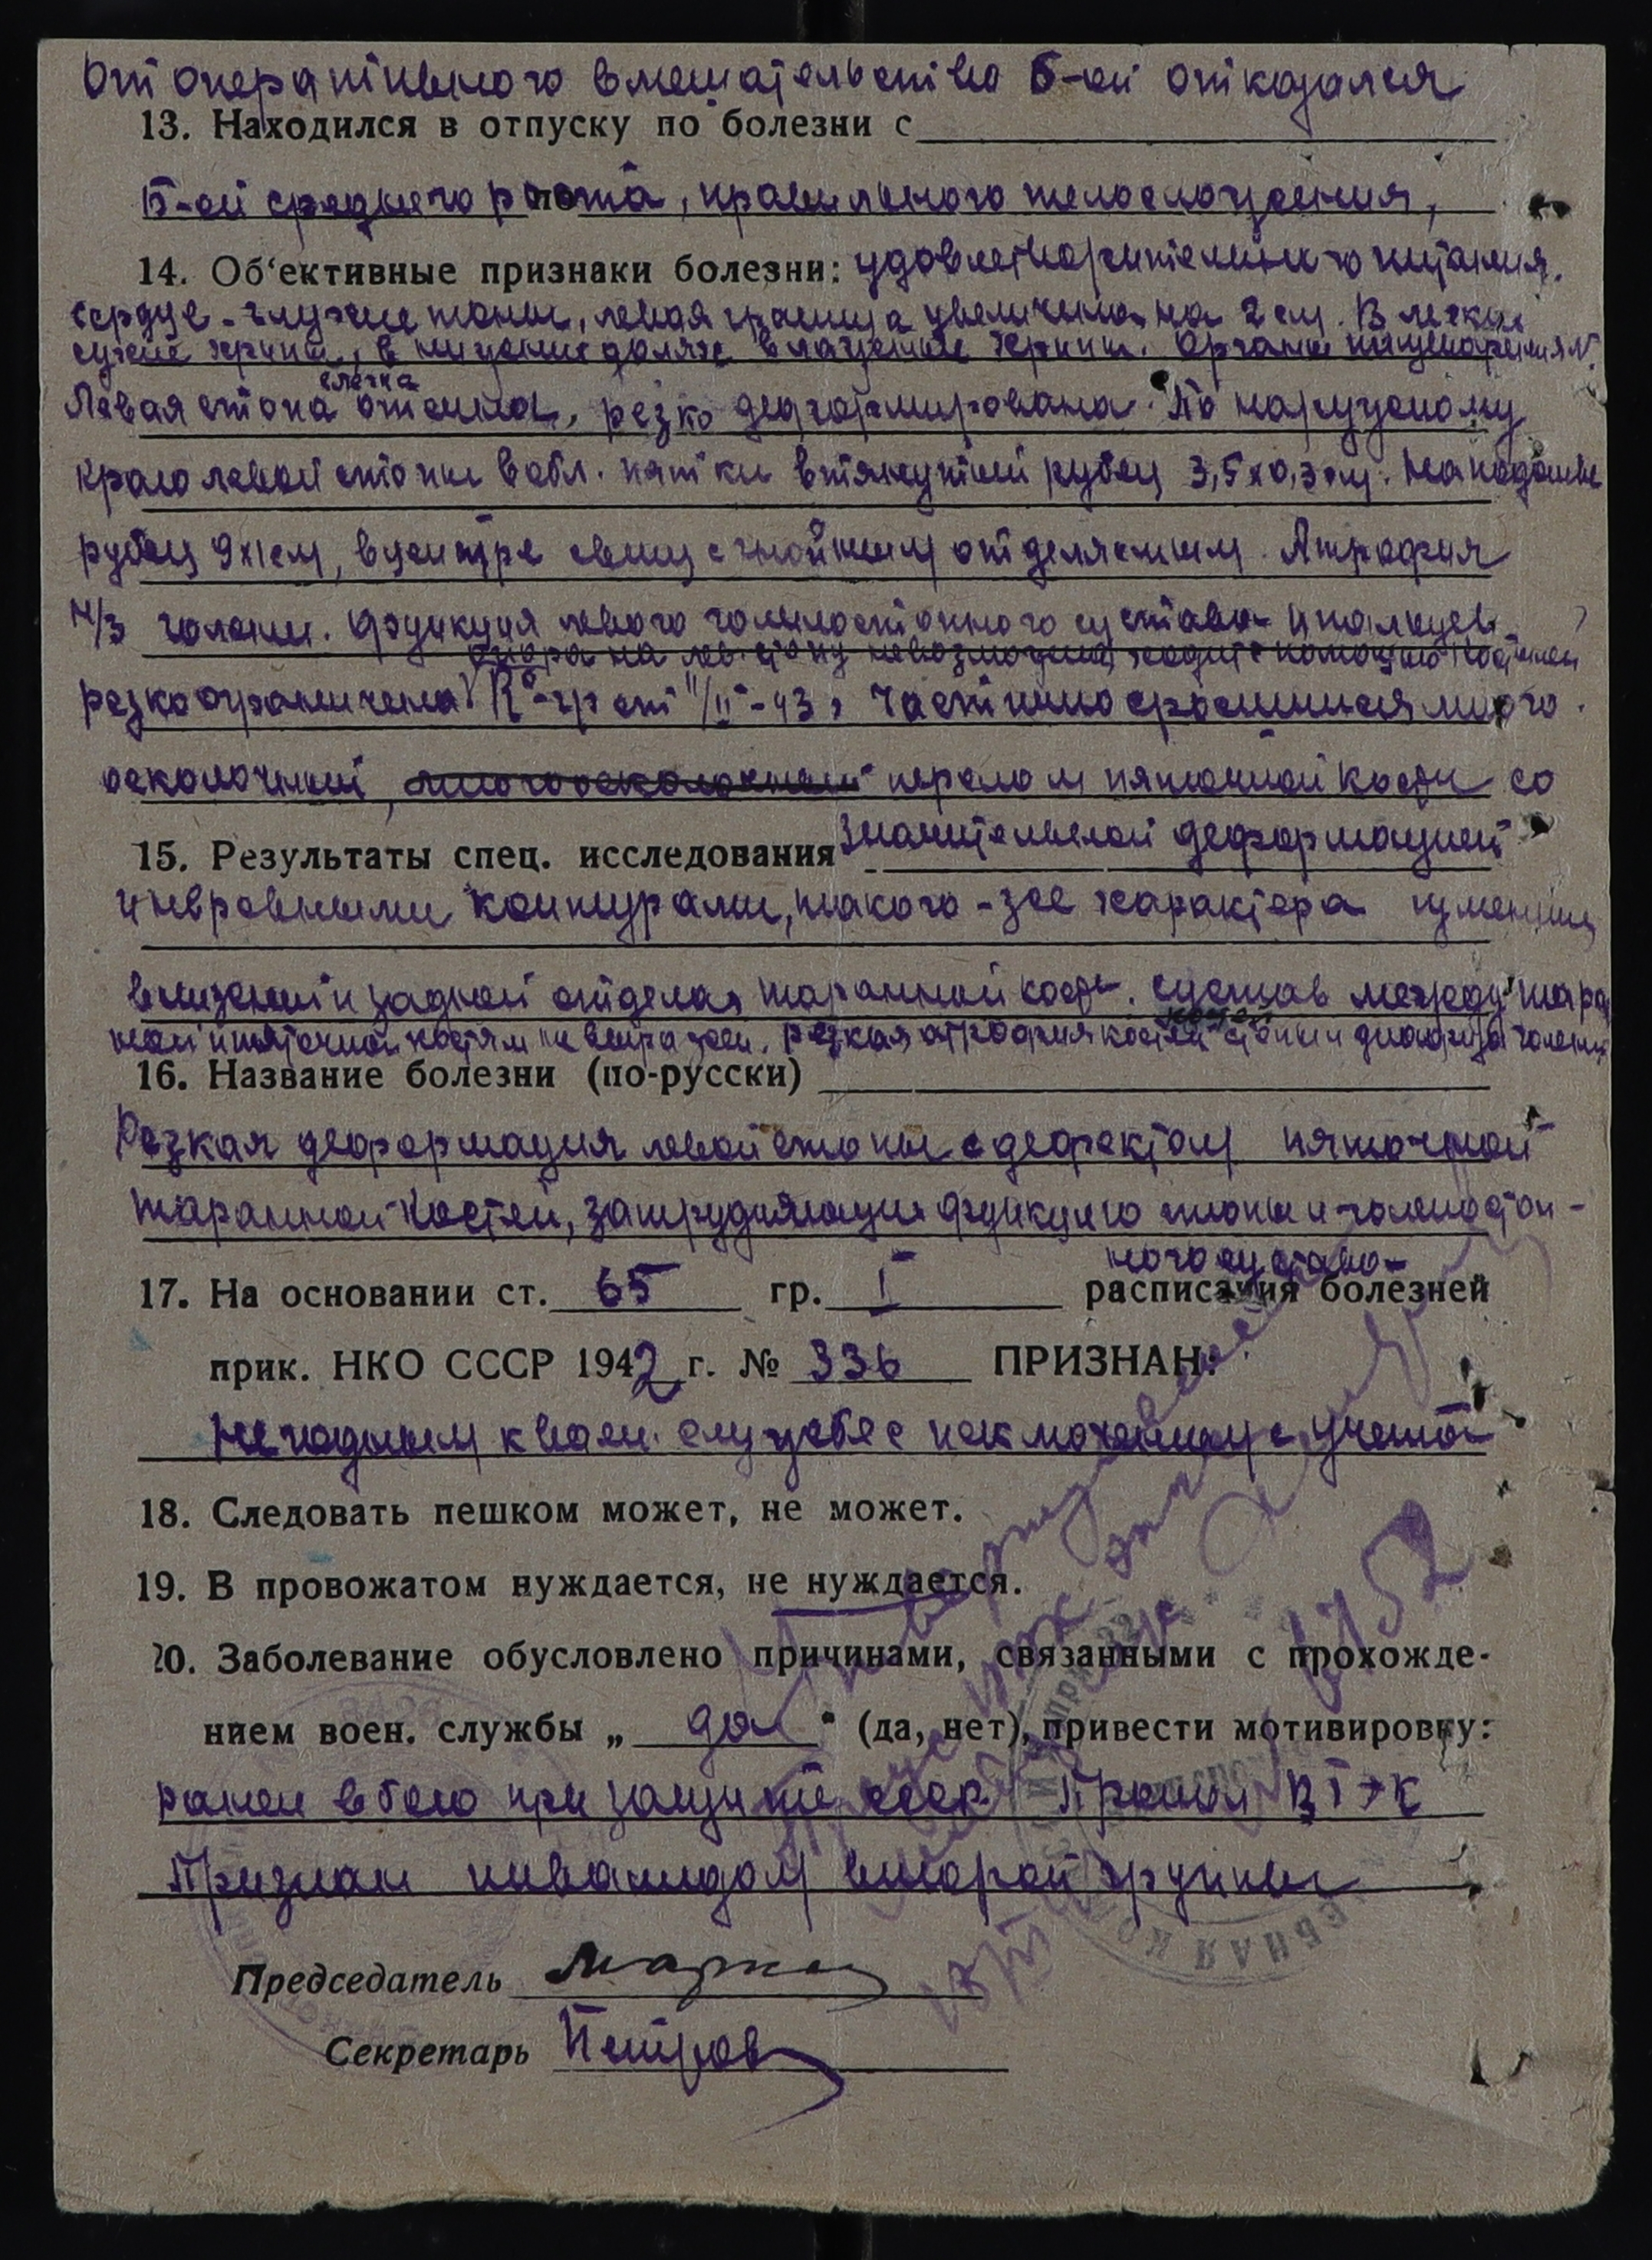 От оперативного вмешательства б-ой отказался
13. Находился в отпуску по болезни с
Б-ой среднего роста, правильного телосложения,
14. Об'ективные признаки болезни: удовлетворительного питания.
Сердце - глухие тоны, левая граница увеличена на 2 см. В легких
сухие хрипы, в нижних долях влажные хрипы. Органы пищеварения N.
слегка
Левая стопа отечна, резко деформирована. По наружному
краю левой стопы в обл. пятки втянутый рубец 3,5х0,3 см. На подошве
рубец 9х1 см, в центре свищ с гнойным отделяемым. Атрофия
н/3 голени. Функция левого голеностопного сустава и пальцев
опора на лев. стопу невозможна, ходит с помощью костылей
резко ограничена. R-гр от 11/II-43г. Частично сросшийся много
оскольчатый, перелом пяточной кости со
15. Результаты спец. исследования значительной деформацией
и неровными контурами, такого-же характера изменения
в нижней и задней отделах таранной кости. Сустав между тара
ной и пяточной костями не выражен. Резкая атрофия костей стопы и диафиза голени
16. Название болезни (по-русски)
Резкая деформация левой стопы с дефектом пяточной
таранной костей, затрудняющая функцию стопы и голеностоп-
ного сустава
17. На основании ст. 65 гр. I расписания болезней
прик. НКО СССР 1942 г. № 336 ПРИЗНАН:
Негодным к воен. службе с исключением с учета
18. Следовать пешком может, не может.
19. В провожатом нуждается, не нуждается.
20. Заболевание обусловлено причинами, связанными с прохожде-
нием воен. службы „ да " (да, нет), привести мотивировку:
ранен в бою при защите СССР. Прошел ВТЭК
Признан инвалидом второй группы
Председатель
Секретарь Петров